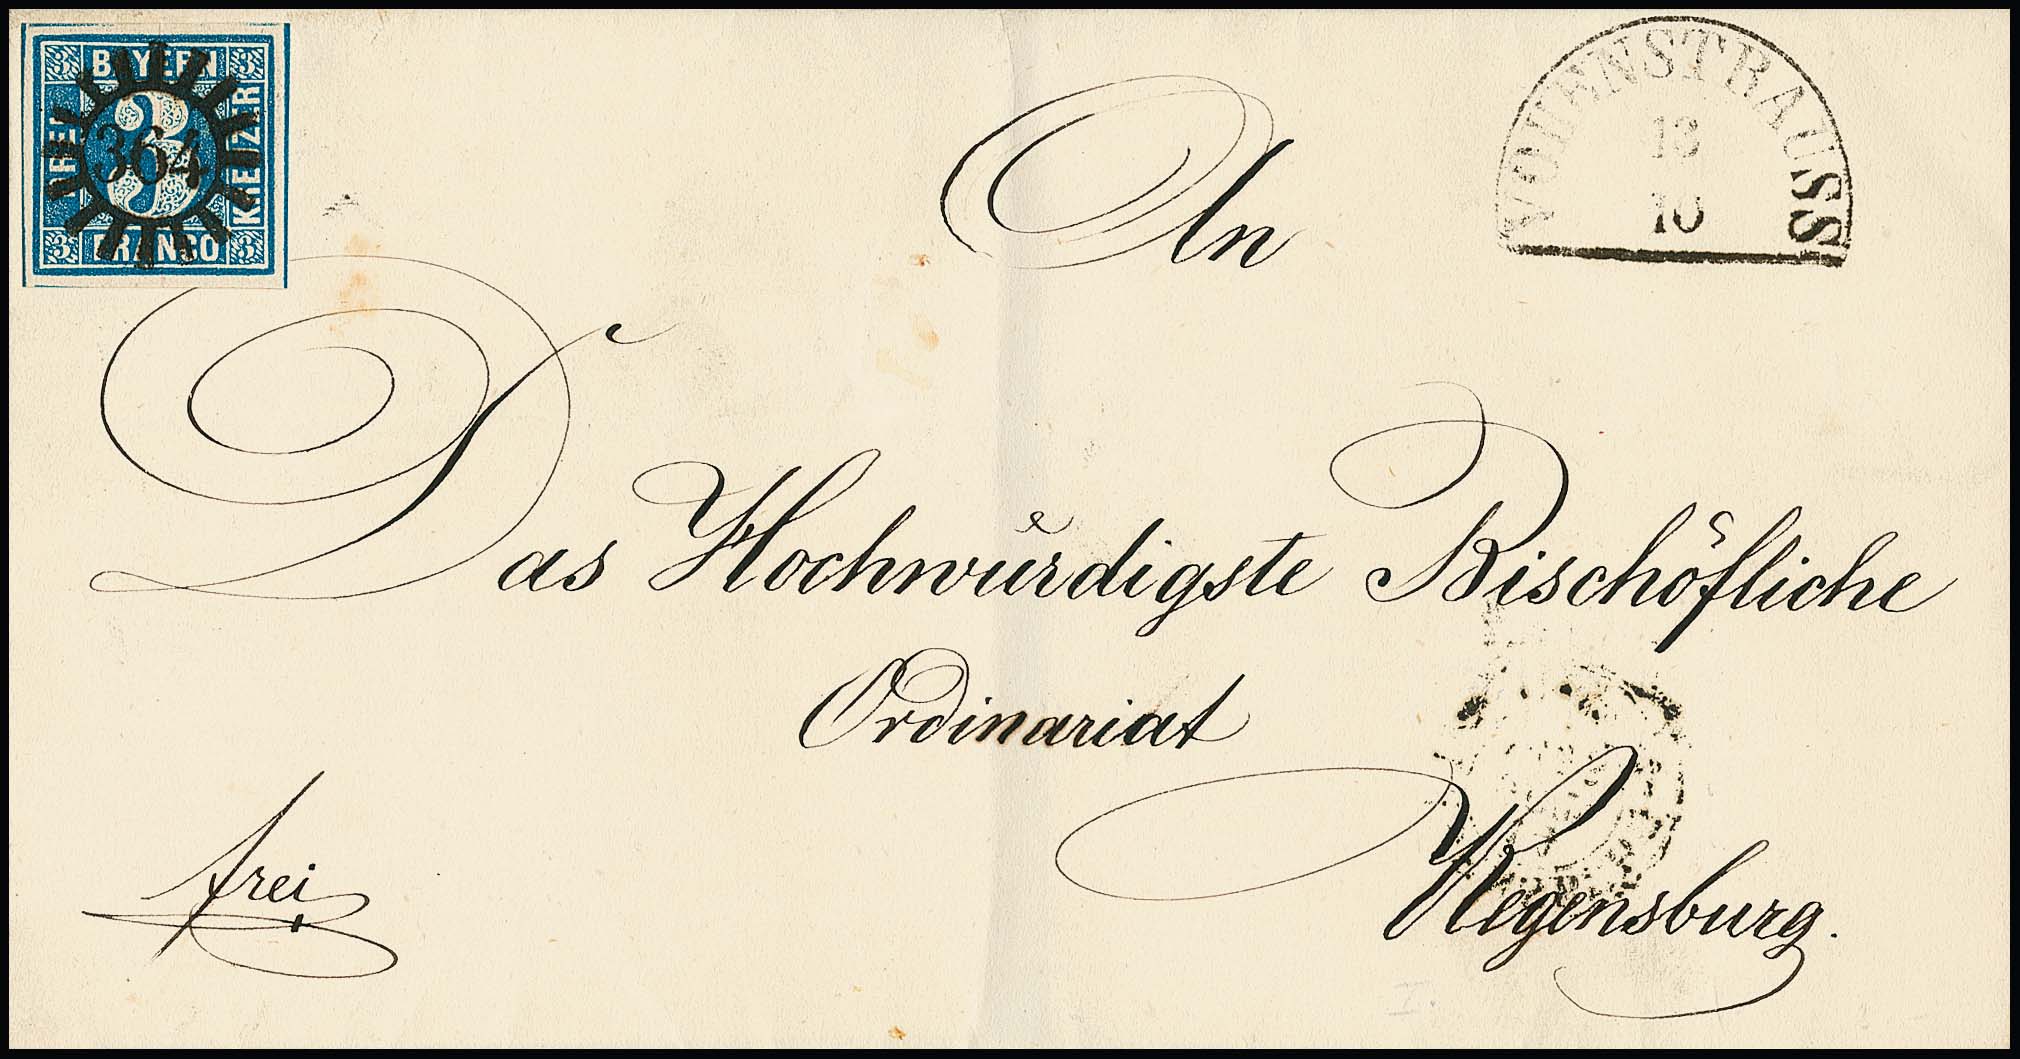 3 BAYERN 3
DREI
364
KREUZER
3 FRANCO 3
VOHENSTRAUSS
13
10
An
Das Hochwürdigste Bischöfliche
Ordinariat
frei
Regensburg.